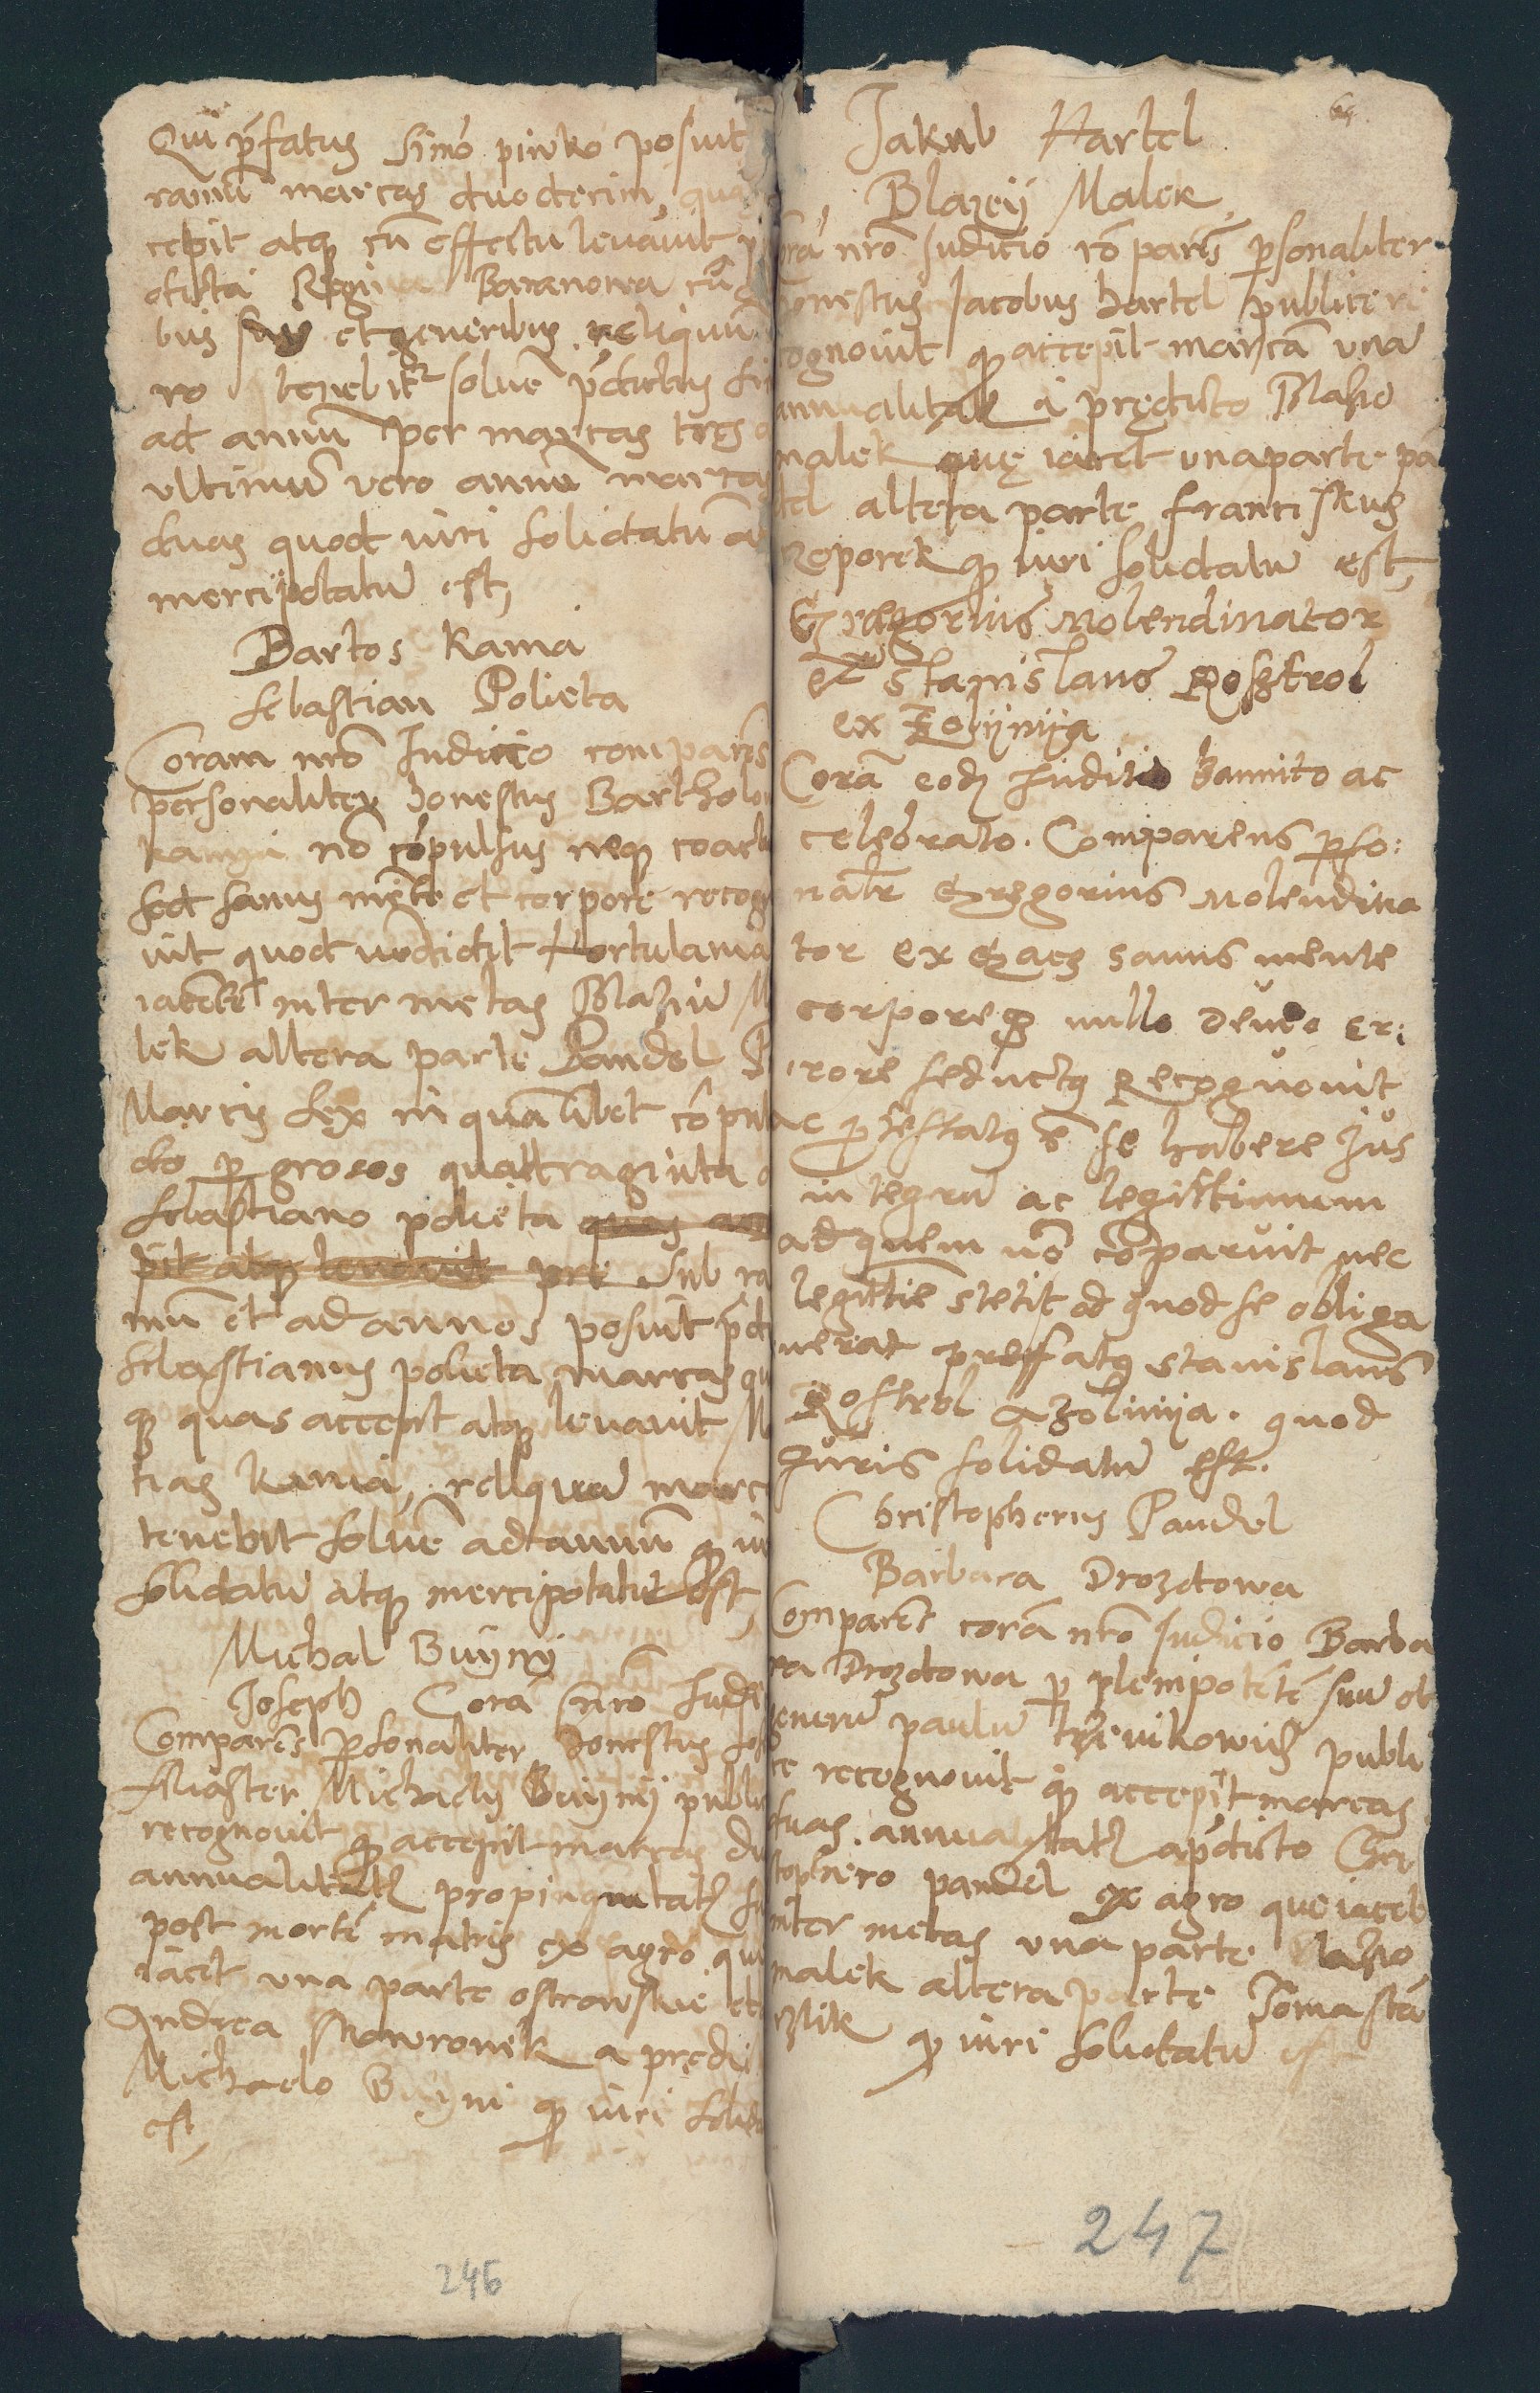 Qui p̄fatus Simō pinko posuit
ramū marcas duodecim, qua
cepit atq cū effectu levavit
dicta Regina Baranowa cū
bus suis et generibus reliquū
ro tenebit solvē p̄dictus Si
ad annū per marcas tres
ultimū vero annū marcas
duas quod iuri solidatū
mercipotatū est,
Bartos Kania
Sebastian Polieta
Coram nrō Iudicio comparēs
personaliter honestus Bartholo
kania nō cōpulsus neq coact
sed sanus mēte et corpore recog
vit quod vendidit Hortulania
iacētē inter metas Blaziū M
lek altera parte Pandel P
Marcis sex in quālibet cōpu
do p grosos quattraginta
Sebastiano polieta quas ac
pit atq levavit pri Sub ra
mū et ad annos posuit p̄d
Sebastianus polieta marcas qu
q quas accepit atq levavit M
tias kania, reliquā marc
tenebit solvē ad annū q iu
solidatū atq mercipotatū est,
Michal Buijnij
Joseph Corā nrō Iudi
Comparēs p̄sonaliter honestus Jos
filiaster Michaelis Buijnij publi
recognovit q accepit marcas du
annualitatē propinquitatē su
post mortē matris ex agro qui
iacet una parte ostranskie et
Andrea Skowronek a predi
Michaelo Buijni q iuri solid
est,
246
Jakub Hartel
Blazeij Malek
orā nrō Iudicio cō parēs p̄sonaliter
honestus Jacobus hartel publice re
cognovit q accepit marcā una
annualitatē a prędicto Blasio
malek quę iacet una parte pa
del altera parte franciskus
zeporek q iuri solidatū est,
Gregorius Molendinator
et Stanislaus Rosstrol
ex Zolijnija
Corā eodē Iuditio bannito ac
celebrato. Comparens p̄so:
nalr̄ Gregorius Molendina
tor ex Gacz sanus mente
corporeq nullo devio er:
rore seductq Recognovit
ac p̄testatq ē se habere Jus
integrū ac legittimum
ad quem nō cōparuit nec
legittīe stetit ad quod se obliga
verat prefatq stanislaus
Rostrol a zolinija. quod
Juris solidatū est.
Christopherus Pandel
Barbara Drozdowa
Comparēt corā nrō Iudicio Barba
ra Drozdowa p plenipotētē suū et
generū paulū publi
ce recognovit q accepit marcas
duas annualitatē a p̄dicto Chri
stophero pandel ex agro que iaceb
inter metas una parte blasio
malek altera parte Toma
q iuri solidatū est
247